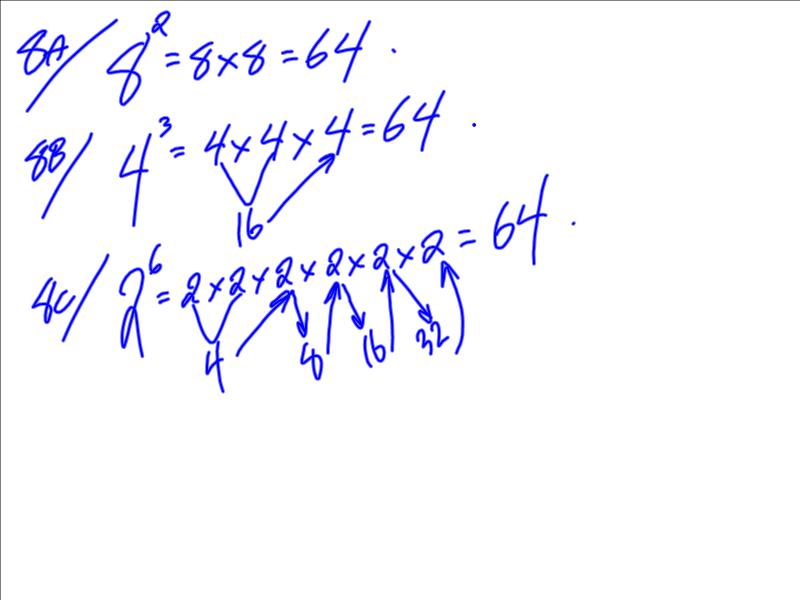 8A/ 8² = 8×8 = 64.
8B/ 4³ = 4×4×4 = 64.
16
8C/ 2⁶ = 2×2×2×2×2×2 = 64.
4 8 16 32